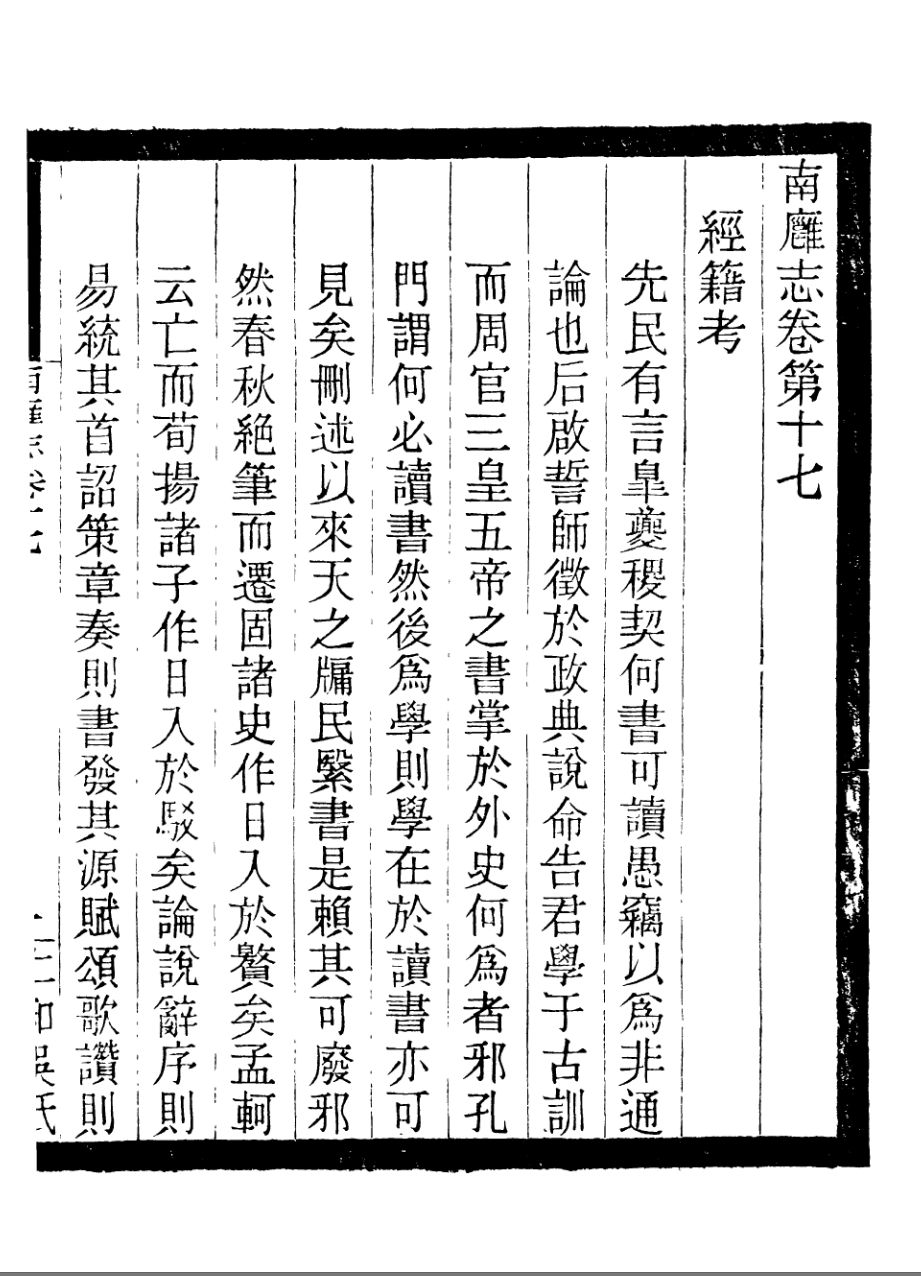 南廱志卷第十七
經籍考
先民有言臯夔稷契何書可讀愚竊以爲非通
論也后啟誓師徵於政典說命告君學于古訓
而周官三皇五帝之書掌於外史何爲者邪孔
門謂何必讀書然後爲學則學在於讀書亦可
見矣刪述以來天之牖民繄書是賴其可廢邪
然春秋絕筆而遷固諸史作日入於贅矣孟軻
云亡而荀揚諸子作日入於駁矣論說辭序則
易統其首詔策章奏則書發其源賦頌歌讚則